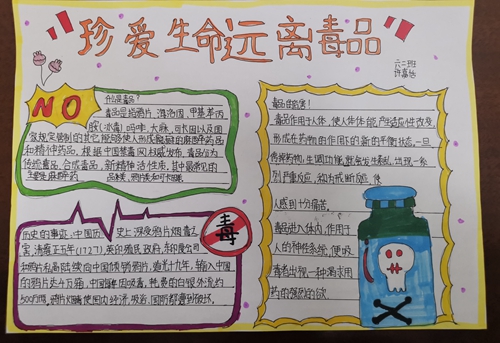 珍爱生命远离毒品
六二班
NO
什么是毒品?
毒品是指鸦片、海洛因、甲基苯丙
胺(冰毒)吗啡、大麻、可卡因以及国
家规定管制的其它能够使人形成瘾癖的麻醉药品
和精神药品。根据中国禁毒网权威发布,毒品分为
传统毒品、合成毒品、新精神活性质,其中最常见的
历史的事变,中国历史上深受鸦片烟毒之
害,清雍正五年(1727),英印殖民政府,东印度公司
毒
毒品的危害!
毒品作用于人体,使人体体能产生适应性改变
形成在药物的作用下的新的平衡状态,一旦
停掉药物,生理功能就会发生紊乱,出现一系
列严重反应,称为戒断反应,使
人感到十分痛苦。
毒品进入体内,作用于
人的神经系统,使吸
毒者出现一种渴求用
药的强烈的欲